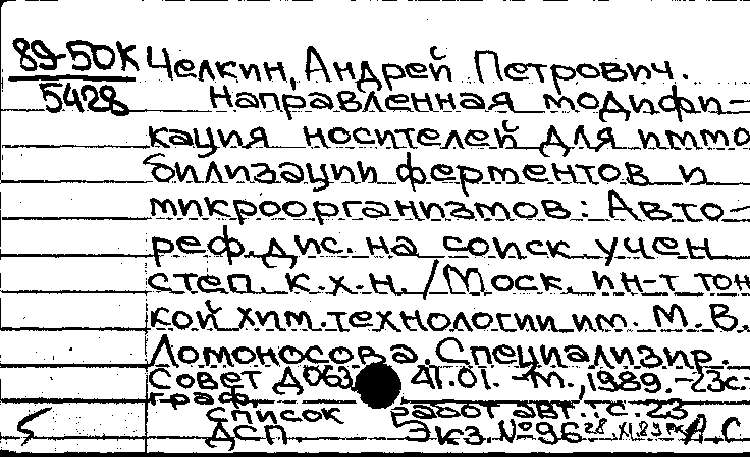 89-50К Челкин, Андрей Петрович.
5428 Направленная модифи-
кация носителей для иммо
билизации ферментов и
микроорганизмов: Авто-
реф. дис. на соиск учен
степ. к.х.н. /Моск. ин-т тон
кой хим. технологии им. М.В.
Ломоносова. Специализир.
Совет Д063 41.01. -М., 1989.-23с.:
граф.
список работ авт.: с. 23
ДСП. Экз. №96 А.С